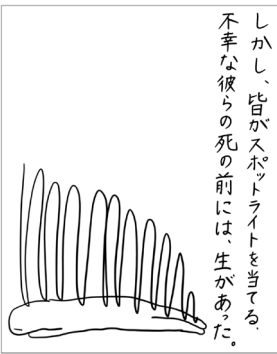 しかし、皆がスポットライトを当てる、
不幸な彼らの死の前には、生があった。